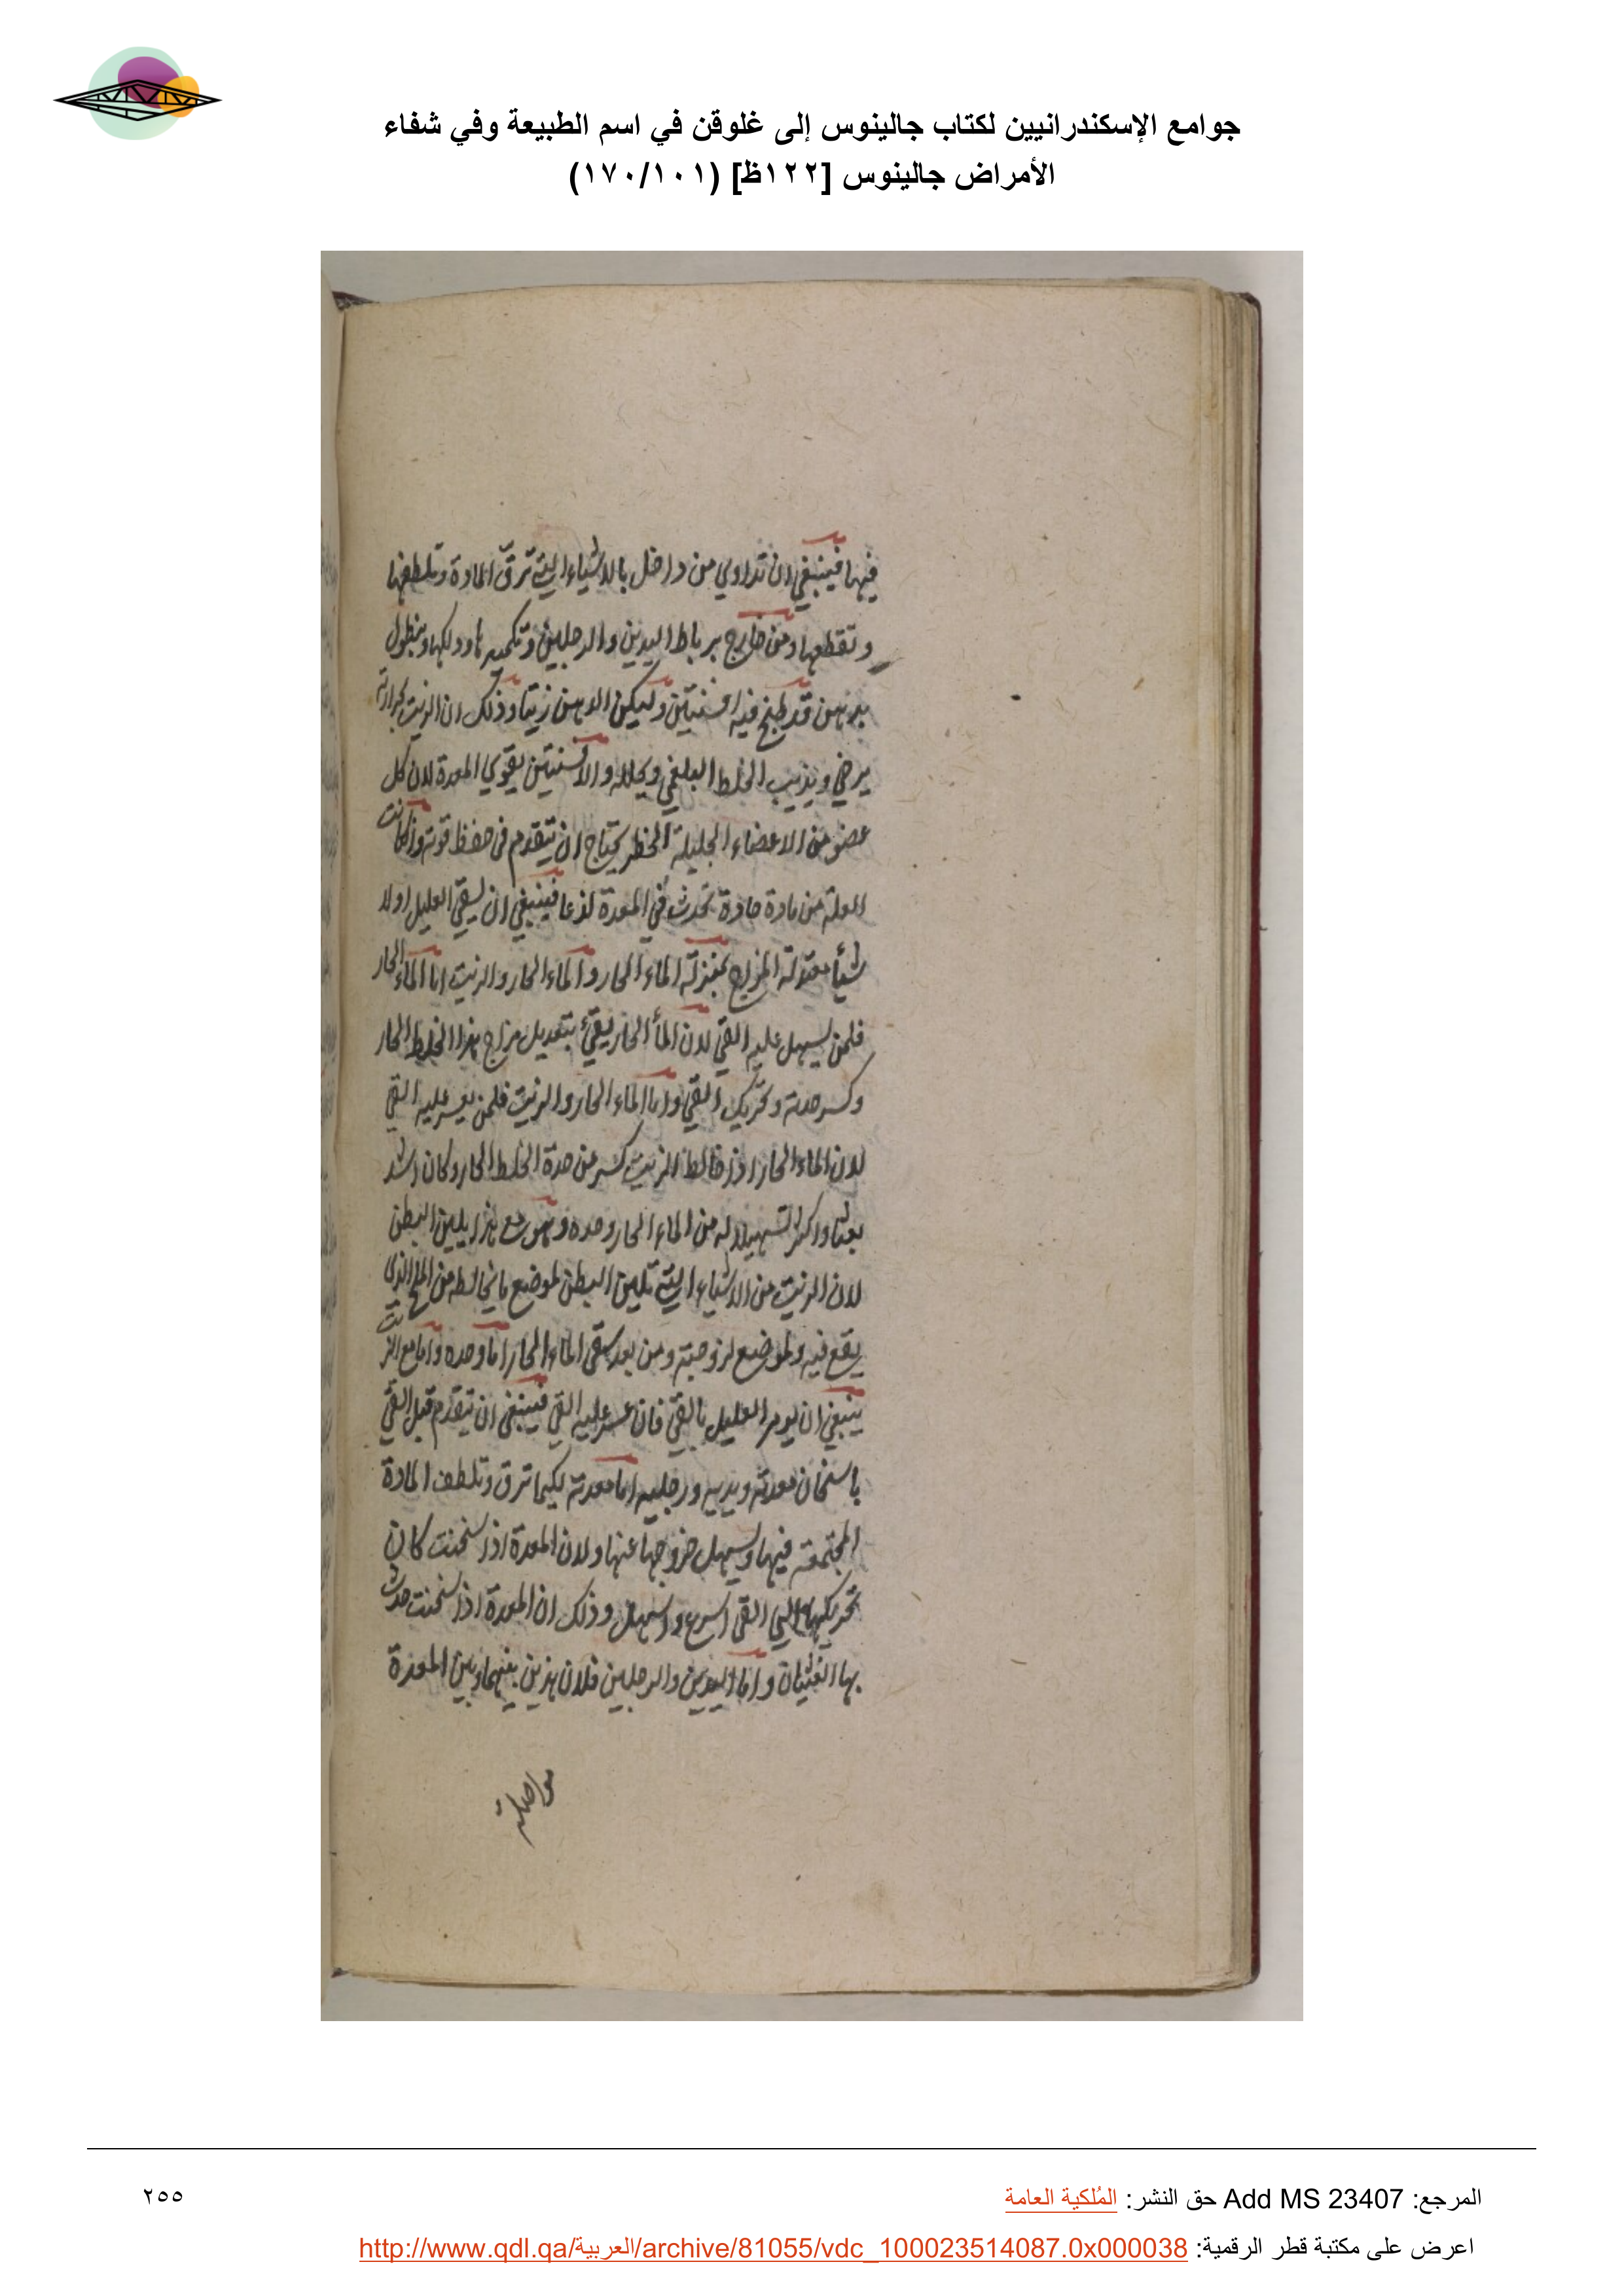 جوامع الإسكندرانيين لكتاب جالينوس إلى غلوقن في اسم الطبيعة وفي شفاء
الأمراض جالينوس [١٢٢ظ] (١٧٠/١٠١)
فيها فينبغي ان تداوي من داخل بالاشياء التي ترق المادة وتلطفها
وتقطعها ومن خارج برباط اليدين والرجلين وتكميدها ودلكها وبنطول
بدهن قد طبخ فيه افسنتين وليكن الدهن زيتا وذلك ان الزيت بحرارته
يرخي ويذيب الخلط البلغمي ويحلله والافسنتين يقوي المعدة لان كل
عضو من الاعضاء الجليلة الخطر يحتاج ان يتقدم في حفظ قوته واذا كانت
العلة من مادة حادة تحدث في المعدة لذعا فينبغي ان يسقي العليل اولا
شيأ معتدلة المزاج بمنزلة الماء الحار والماء الحار والزيت اما الماء الحار
فلمن يسهل عليه القي لان المأ الحار يقيئ بتعديل مزاج هذا الخلط الحار
وكسر حدته وتحريك القي واما الماء الحار والزيت فلمن يعسر عليه القي
لان الماء الحار اذا خالط الزيت كسر من حدة الخلط الحار وكان اشد
تعديلا واكثر تسهيلا له من الماء الحار وحده وهو مع هذا يلين البطن
لان الزيت من الاشياء التي تلين البطن لموضع ما يخالطه من الملح الذي
يقع فيه ولموضع لزوجته ومن بعد سقي الماء الحار اما وحده واما مع الزيت
ينبغي ان يومر العليل بالقي فان عسر عليه القي فينبغي ان يتقدم قبل القي
باسخان معدته ويديه ورجليه اما معدته لكيما ترق وتلطف المادة
المجتمعة فيها ويسهل خروجها عنها ولان المعدة اذا سخنت كان
تحريكها الي القي اسرع واسهل وذلك ان المعدة اذا سخنت حدث
بها الغثيان واما اليدين والرجلين فلان هذين بينهما وبين المعدة
مواصلة
المرجع: Add MS 23407 حق النشر: المُلكية العامة
٢٥٥
اعرض على مكتبة قطر الرقمية: http://www.qdl.qa/العربية/archive/81055/vdc_100023514087.0x000038